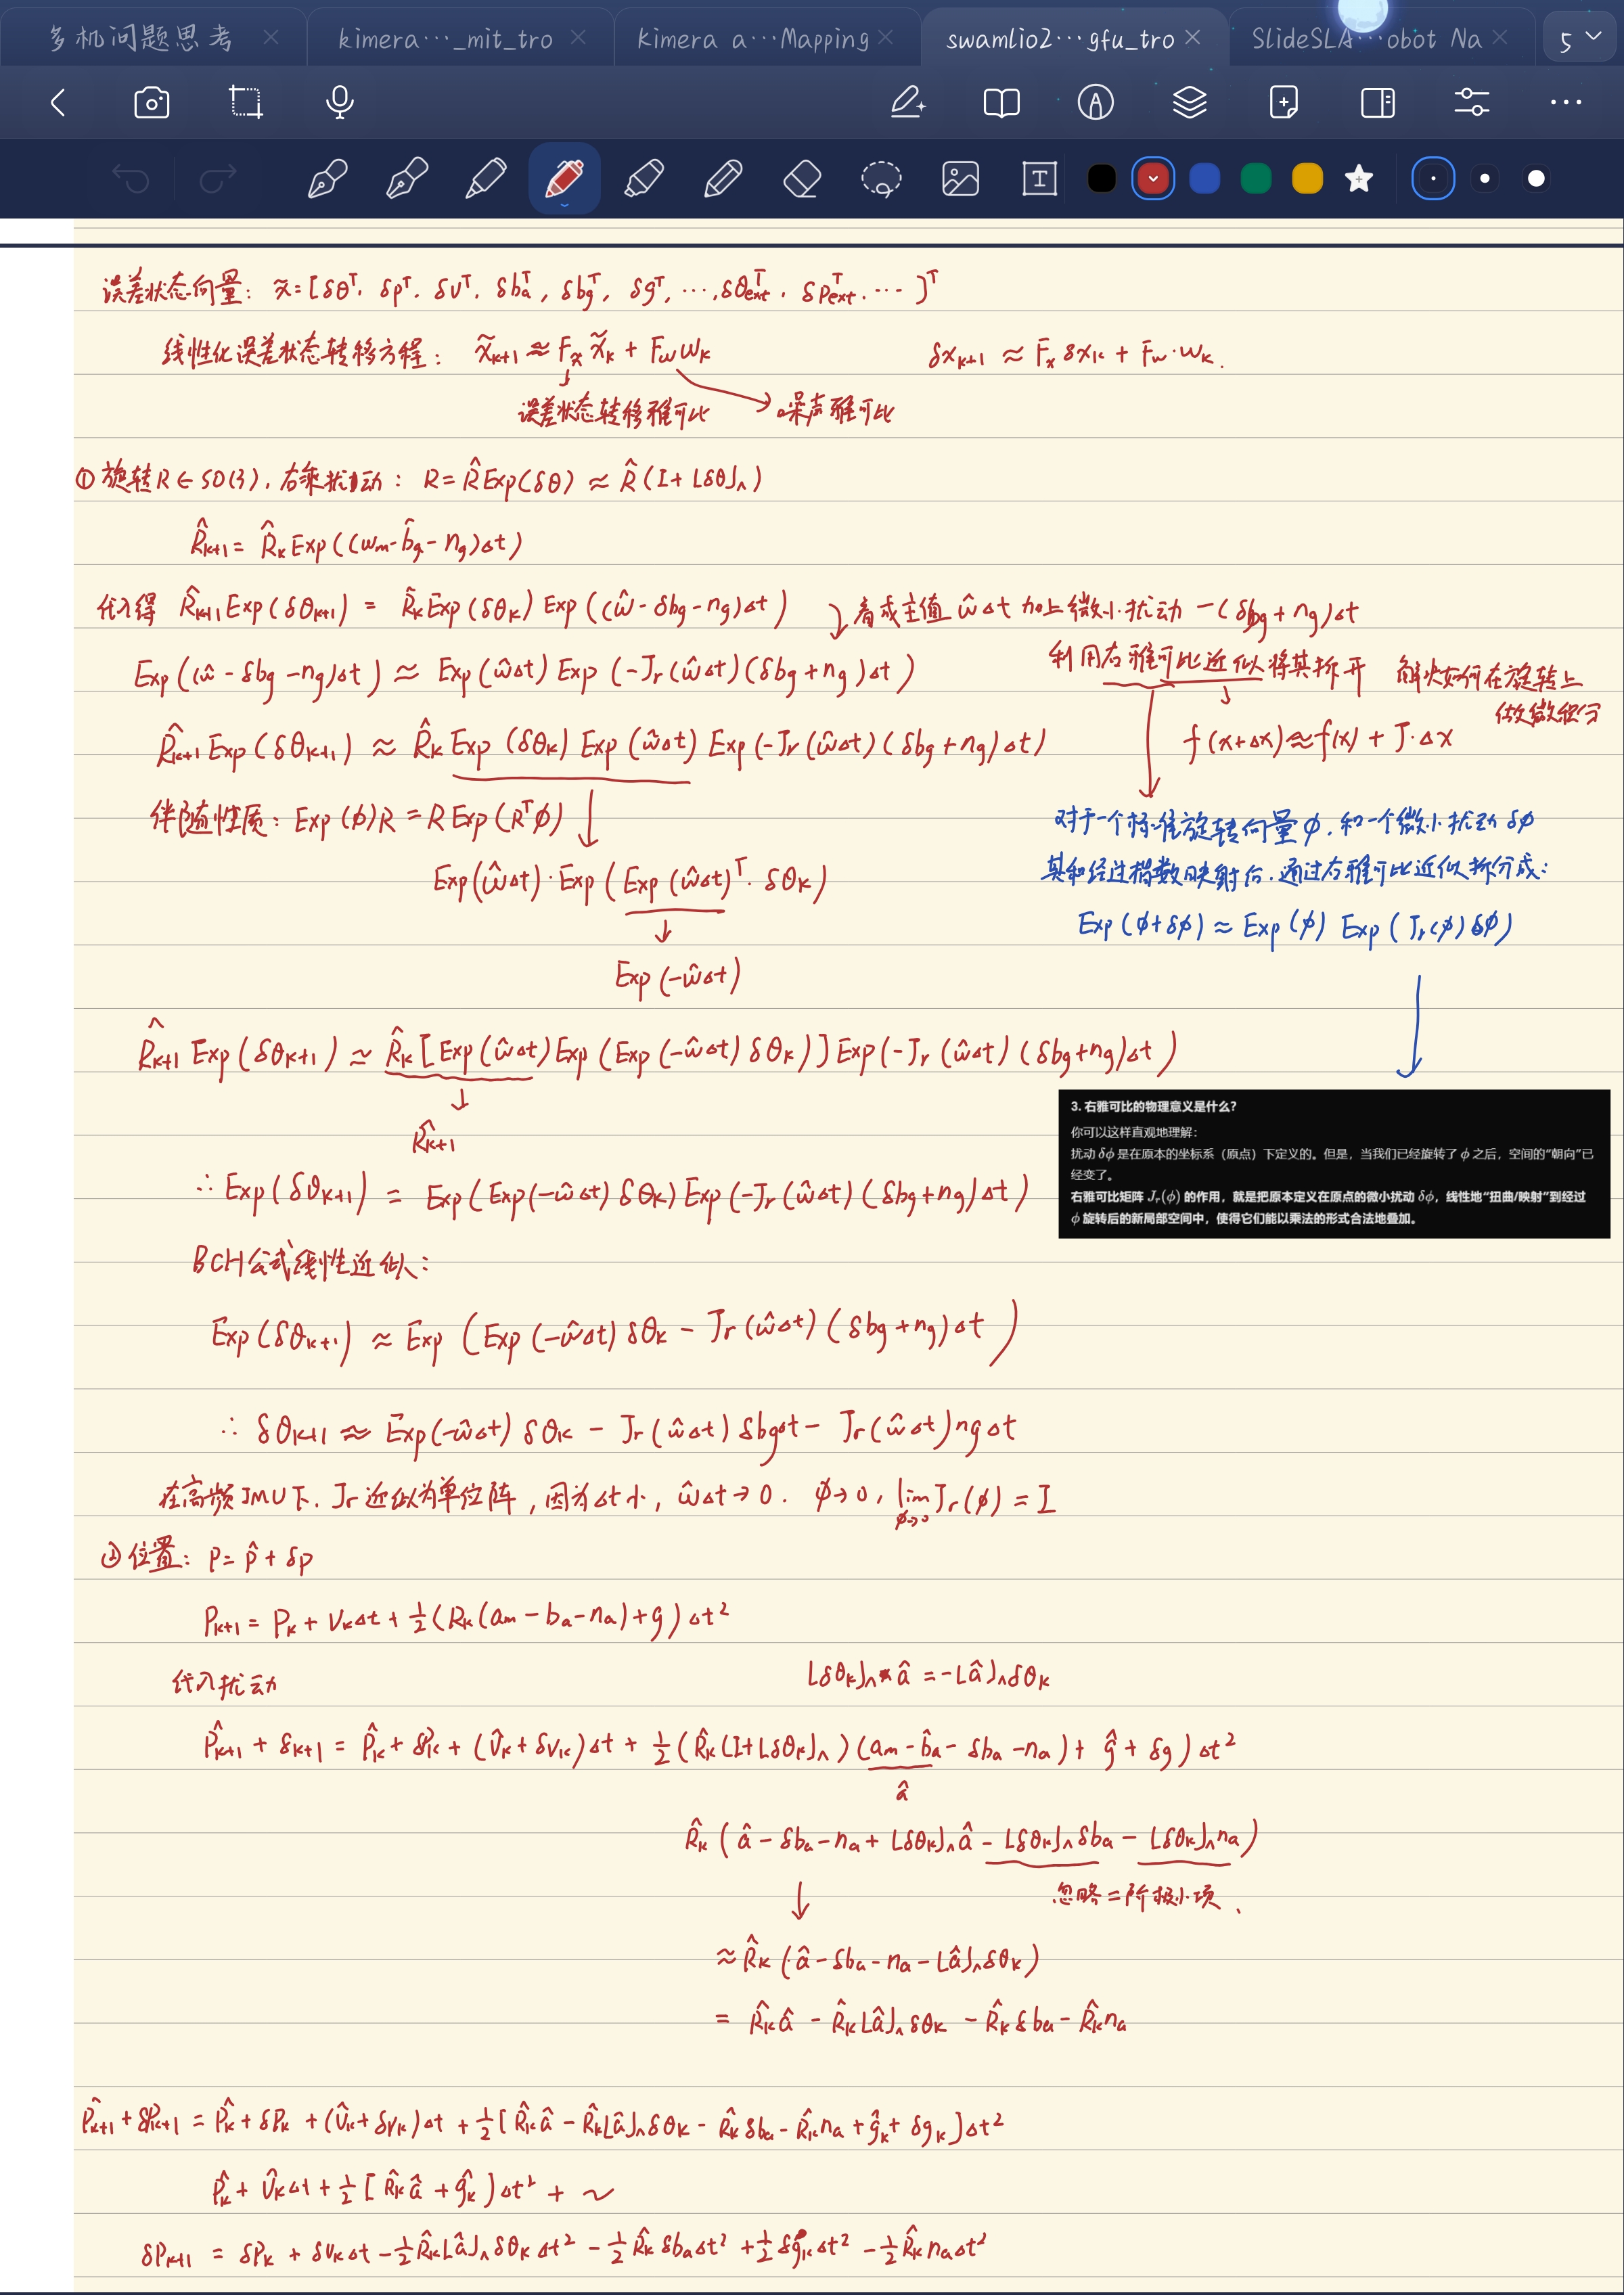 多机问题思考
kimera···_mit_tro
Kimera a···Mapping
swamlio2···gfu_tro
SlideSLA···obot Na
5
误差状态向量: x̃=[δθᵀ, δpᵀ, δvᵀ, δbₐᵀ, δb_gᵀ, δgᵀ, ···, δθ_extᵀ, δp_extᵀ, ···]ᵀ
线性化误差状态转移方程: x̃ₖ₊₁ ≈ Fₓ x̃ₖ + F_w wₖ
δxₖ₊₁ ≈ Fₓ δxₖ + F_w·wₖ.
误差状态转移雅可比
噪声雅可比
① 旋转R∈SO(3), 右乘扰动: R=R̂Exp(δθ) ≈ R̂(I+⌊δθ⌋∧)
R̂ₖ₊₁= R̂ₖ Exp((wₘ-b̂_g-n_g)Δt)
代入得 R̂ₖ₊₁Exp(δθₖ₊₁) = R̂ₖExp(δθₖ) Exp((ŵ-δb_g-n_g)Δt)
看成主值 ŵΔt 加上微小扰动 -(δb_g+n_g)Δt
利用右雅可比近似将其拆开
解决如何在旋转上
做微积分
Exp((ŵ-δb_g-n_g)Δt) ≈ Exp(ŵΔt) Exp(-Jᵣ(ŵΔt)(δb_g+n_g)Δt)
R̂ₖ₊₁Exp(δθₖ₊₁) ≈ R̂ₖ Exp(δθₖ) Exp(ŵΔt) Exp(-Jᵣ(ŵΔt)(δb_g+n_g)Δt)
f(x+Δx)≈f(x) + J·Δx
伴随性质: Exp(ϕ)R = R Exp(Rᵀϕ)
对于一个标准旋转向量ϕ, 和一个微小扰动δϕ
其和经过指数映射后, 通过右雅可比近似拆分成:
Exp(ϕ+δϕ) ≈ Exp(ϕ) Exp(Jᵣ(ϕ)δϕ)
Exp(ŵΔt)·Exp(Exp(ŵΔt)ᵀ·δθₖ)
Exp(-ŵΔt)
R̂ₖ₊₁ Exp(δθₖ₊₁) ≈ R̂ₖ[Exp(ŵΔt)Exp(Exp(-ŵΔt)δθₖ)]Exp(-Jᵣ(ŵΔt)(δb_g+n_g)Δt)
R̂ₖ₊₁
3. 右雅可比的物理意义是什么?
你可以这样直观地理解:
扰动 δϕ 是在原本的坐标系（原点）下定义的。但是，当我们已经旋转了 ϕ 之后，空间的“朝向”已
经变了。
右雅可比矩阵 Jᵣ(ϕ) 的作用，就是把原本定义在原点的微小扰动 δϕ，线性地“扭曲/映射”到经过
ϕ 旋转后的新局部空间中，使得它们能以乘法的形式合法地叠加。
∴ Exp(δθₖ₊₁) = Exp(Exp(-ŵΔt)δθₖ)Exp(-Jᵣ(ŵΔt)(δb_g+n_g)Δt)
BCH公式线性近似:
Exp(δθₖ₊₁) ≈ Exp(Exp(-ŵΔt)δθₖ - Jᵣ(ŵΔt)(δb_g+n_g)Δt)
∴ δθₖ₊₁ ≈ Exp(-ŵΔt)δθₖ - Jᵣ(ŵΔt)δb_gΔt - Jᵣ(ŵΔt)n_gΔt
在高频IMU下, Jᵣ近似为单位阵, 因为Δt小, ŵΔt→0. ϕ→0, lim_{ϕ→0} Jᵣ(ϕ) = I
② 位置: p= p̂ + δp
Pₖ₊₁ = Pₖ + VₖΔt + ½(Rₖ(aₘ-bₐ-nₐ)+g)Δt²
代入扰动
⌊δθₖ⌋∧ â = -⌊â⌋∧δθₖ
P̂ₖ₊₁ + δₖ₊₁ = P̂ₖ + δPₖ + (V̂ₖ+δvₖ)Δt + ½(R̂ₖ(I+⌊δθₖ⌋∧)(aₘ-b̂ₐ-δbₐ-nₐ) + ĝ + δg)Δt²
â
R̂ₖ(â-δbₐ-nₐ+⌊δθₖ⌋∧â-⌊δθₖ⌋∧δbₐ-⌊δθₖ⌋∧nₐ)
忽略二阶极小项、
≈R̂ₖ(â-δbₐ-nₐ-⌊â⌋∧δθₖ)
= R̂ₖâ - R̂ₖ⌊â⌋∧δθₖ - R̂ₖδbₐ - R̂ₖnₐ
P̂ₖ₊₁+δPₖ₊₁ = P̂ₖ+δPₖ+(V̂ₖ+δVₖ)Δt+½[R̂ₖâ-R̂ₖ⌊â⌋∧δθₖ-R̂ₖδbₐ-R̂ₖnₐ+ĝₖ+δgₖ]Δt²
P̂ₖ+V̂ₖΔt+½[R̂ₖâ+ĝₖ]Δt²+~
δPₖ₊₁ = δPₖ+δvₖΔt-½R̂ₖ⌊â⌋∧δθₖΔt²-½R̂ₖδbₐΔt²+½δgₖΔt²-½R̂ₖnₐΔt²